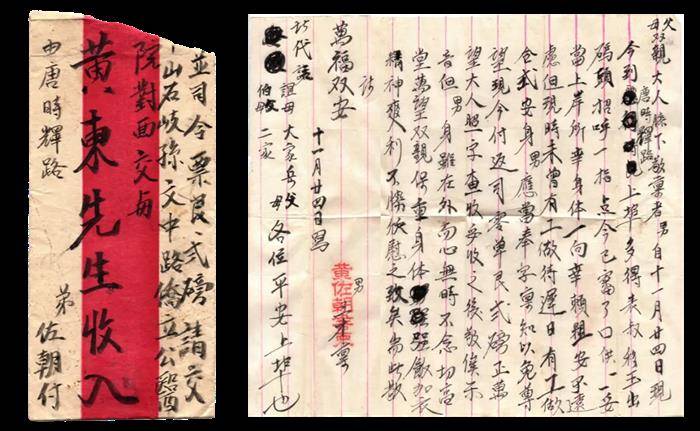 並司令票艮弍磅請交
山石岐孫文中路僑立公醫
院對面交每
黃東先生收入
弟 佐朝付
由唐時輝路
父母双親大人膝下敬稟者男自十一月廿四日現
今到唐時輝路上埠多得表叔移玉出
碼頭招呼一指点今已寫了口供一妥
當上岸所幸身体一向幸賴親安不遠
慮但現時未曾有工做待遲日有工做
合式安身男應當奉字稟知以免尊
望現今付返司零單艮弍磅正萬
望大人照字查收妥收之後敬候示
音但男身雖在外而心無時不念切高
堂萬望双親保重身体 飯加衣
精神爽利不勝欣慰之致矣耑此敬
請
萬福双安
十一月廿四日寫
男 黃佐朝 稟
代請 誼母 大家岳父母各位平安上埠也
伯 二家